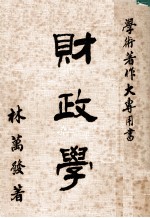 學術著作大專用書
財政學
林萬發著